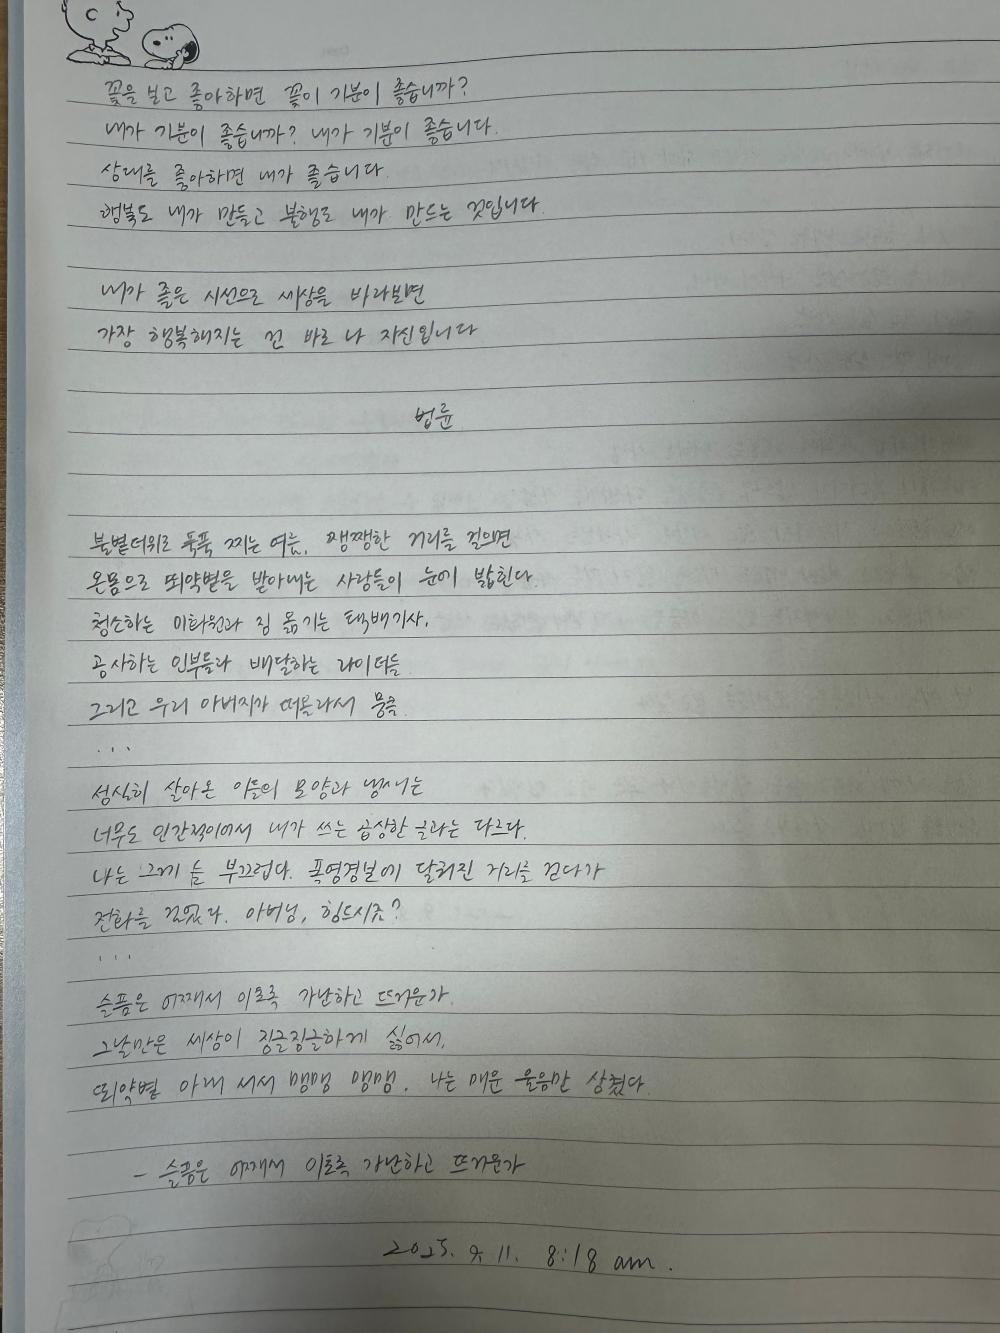 꽃을 보고 좋아하면 꽃이 기분이 좋습니까?
내가 기분이 좋습니까? 내가 기분이 좋습니다.
상대를 좋아하면 내가 좋습니다.
행복도 내가 만들고 불행도 내가 만드는 것입니다.
내가 좋은 시선으로 세상을 바라보면
가장 행복해지는 건 바로 나 자신입니다
법륜
불볕더위로 푹푹 찌는 여름, 쨍쨍한 거리를 걸으면
온몸으로 뙤약볕을 받아내는 사람들이 눈에 밟힌다.
청소하는 미화원과 짐 옮기는 택배기사,
공사하는 인부들과 배달하는 라이더들
그리고 우리 아버지가 떠올라서 뭉클.
...
성실히 살아온 이들의 모양과 냄새는
너무도 인간적이어서 내가 쓰는 곱상한 글과는 다르다.
나는 그게 늘 부끄럽다. 폭염경보에 달궈진 거리를 걷다가
전화를 걸었다. 아버님, 힘드시죠?
...
슬픔은 어째서 이토록 가난하고 뜨거운가.
그날만은 세상이 징글징글하게 싫어서,
뙤약볕 아래 서서 맴맴 맴맴. 나는 매운 울음만 삼켰다.
- 슬픔은 어째서 이토록 가난하고 뜨거운가
2025. 9. 11. 8:18 am.